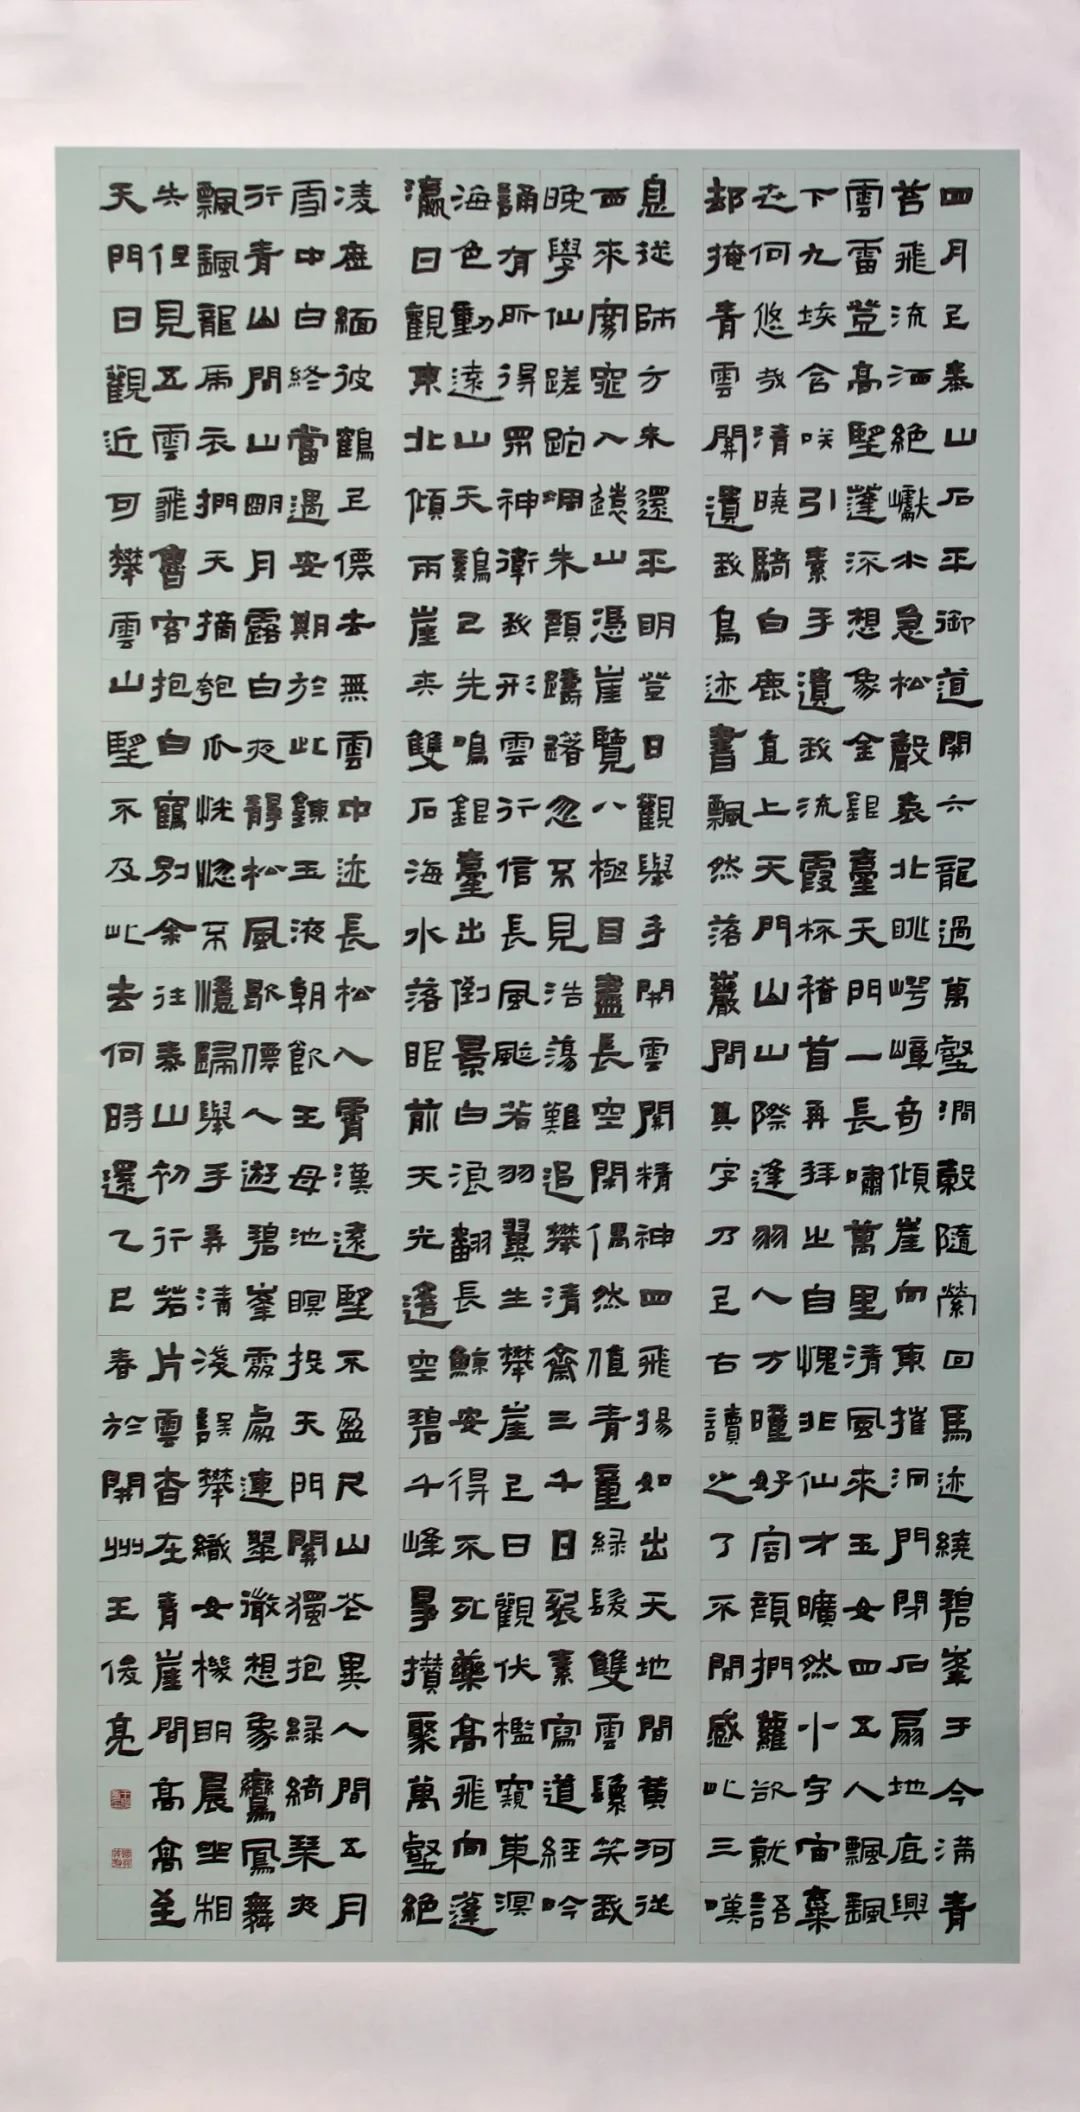 四月上泰山石平御道開六龍過萬壑澗穀隨縈回馬迹繞碧峯于今滿青
苔飛流洒絕巘水急松聲哀北眺崿嶂奇傾崖向東摧洞門閉石扇地底興
雲雷登高望蓬流想象金銀臺天門一長嘯萬里清風來玉女四五人飄颻
下九垓含咲引素手遺我流霞杯稽首再拜之自愧非仙才曠然小宇宙棄
世何悠哉清曉騎白鹿直上天門山山際逢羽人方瞳好容顏捫蘿欲就語
却掩青雲關遺我鳥迹書飄然落巖間其字乃上古讀之了不閒感此三嘆
息從師方未還平明登日觀舉手開雲關精神四飛揚如出天地間黃河從
西來窈窕入遠山憑崖覽八極目盡長空閑偶然值青童綠髮雙雲鬟笑我
晚學仙蹉跎凋朱顏躊躇忽不見浩蕩難追攀清齋三千日裂素寫道經吟
誦有所得眾神衛我形雲行信長風颯若羽翼生攀崖上日觀伏檻窺東溟
海色動遠山天鷄已先鳴銀臺出倒景白浪翻長鯨安得不死藥高飛向蓬
瀛日觀東北傾兩崖夾雙石海水落眼前天光遙空碧千峰爭攢聚萬壑絕
凌歷緬彼鶴上僊去無雲中迹長松入霄漢遠望不盈尺山花異人間五月
雪中白終當遇安期於此鍊玉液朝飲王母池瞑投天門關獨抱綠綺琴夜
行青山間山明月露白夜靜松風歇僊人遊碧峯處處連翠微想象鸞鳳舞
飄颻龍虎衣捫天摘匏瓜恍惚不憶歸舉手弄清淺誤攀織女機明晨坐相
失但見五雲飛魯客抱白鶴別余往泰山初行若片雲杳在青崖間高高至
天門日觀近可攀雲山望不及此去何時還乙巳春於開州王俊亮